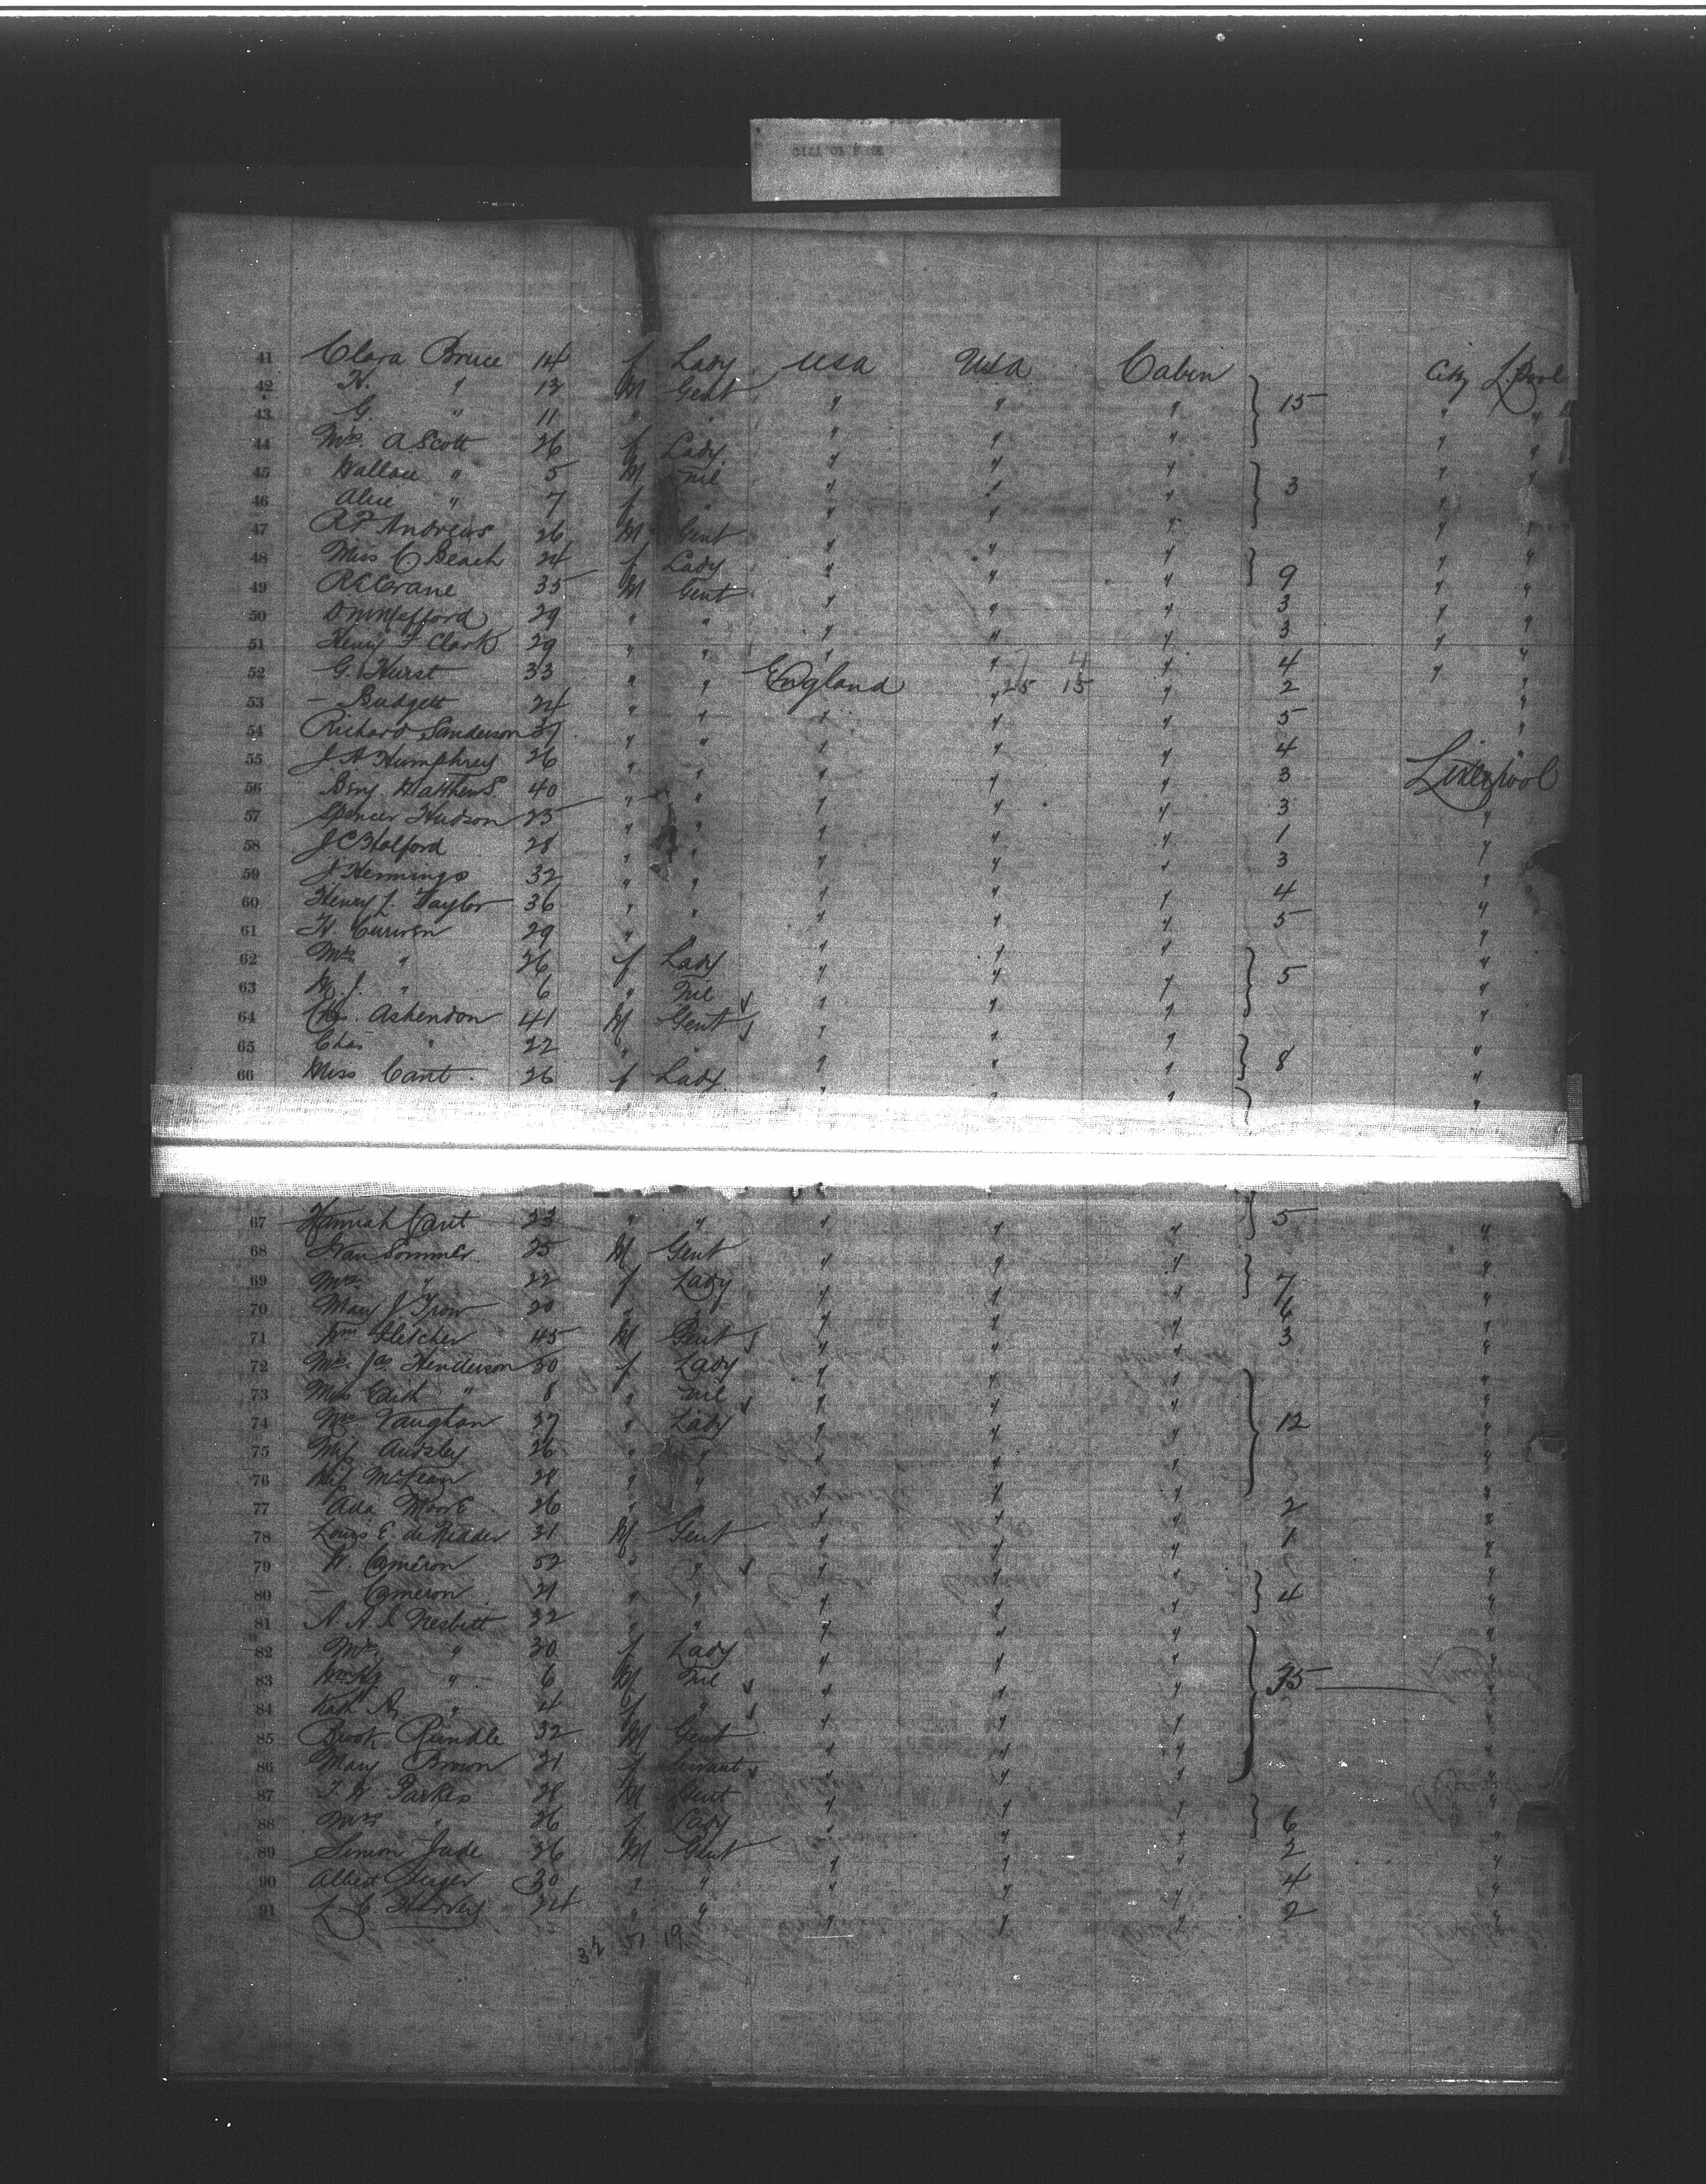 41 Clara Bruce 14 f Lady USA USA Cabin City L.Pool
42 H. " 13 M Gent " " " } 15 " "
43 G. " 11 " " " " " " "
44 Mrs. A Scott 26 f Lady " " " " "
45 Wallace " 5 M nil " " " } 3 " "
46 Alice " 7 f " " " " "
47 R F Andrews 26 M Gent " " " " "
48 Miss C Beach 24 f Lady " " " } 9 " "
49 R C Crane 35 M Gent " " " 3 " "
50 29 " " " " " 3 " "
51 Henry F Clark 29 " " " " " 4 " "
52 G. Hurst 33 " " England " 25 15 " 2 " "
53 - Budgett 24 " " " " " 5 "
54 Richard Sanderson 37 " " " " " 4 "
55 J A Humphrey 26 " " " " " 3 Liverpool
56 Benj. Matthews 40 " " " " " 3 "
57 Spencer Hudson 25 " " " " " 1 "
58 J C Halford 28 " " " " " 3 "
59 J Hennings 32 " " " " " 4 "
60 Henry J. Taylor 36 " " " " " 5 "
61 H. Curwen 29 " " " " " "
62 Mrs " 26 f Lady " " " } 5 "
63 " 6 " Nil " " " "
64 Chs. Ashendon 41 M Gent " " " "
65 Chas " 22 " " " " } 8 "
66 Miss Cant 26 f Lady " " " } "
67 Hannah Cant 23 " " " " " } 5 "
68 Sommer 25 M Gent " " " "
69 Mrs " 22 f Lady " " " } 7 "
70 Mary J Trow 20 " " " " " 6 "
71 Wm Fletcher 45 M Gent " " " 3 "
72 Mrs. Jas Henderson 30 f Lady " " " "
73 Miss Edith " 8 " nil " " " "
74 Mrs Vaughan 37 " Lady " " " } 12 "
75 Miss Audsley 26 " " " " " "
76 Miss McLean 28 " " " " " "
77 Ada Moore 26 " " " " 2 "
78 Louis E. de Ridder 31 M Gent " " " 1 "
79 Cameron 52 " " " " " "
80 - Cameron 21 " " " " " } 4 "
81 A. A. L Nesbitt 32 " " " " " "
82 Mrs. " 30 f Lady " " " "
83 " 6 M Nil " " " } "
84 Kath A. " 4 f " " " " "
85 Brook Rundle 32 M Gent " " " "
86 Mary Brown 21 f Servant " " " "
87 T. W Parkes 28 M Gent " " " "
88 Mrs " 26 f Lady " " " } 6 "
89 Simon Jude 26 M Gent " " " 2 "
90 Albert 30 " " " " " 4 "
91 Harvey 24 " " " " " 2 "
32 51 19